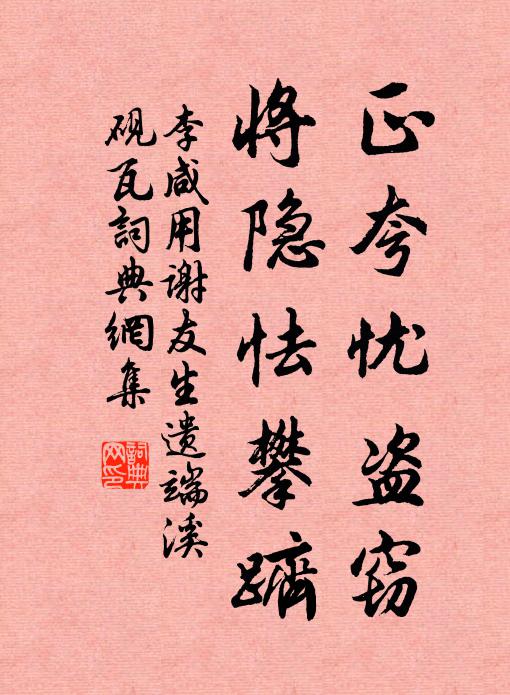 正夸忧盗窃
将隐怯攀跻
李咸用谢友生遗端溪
砚瓦詞典網集
詞典网印